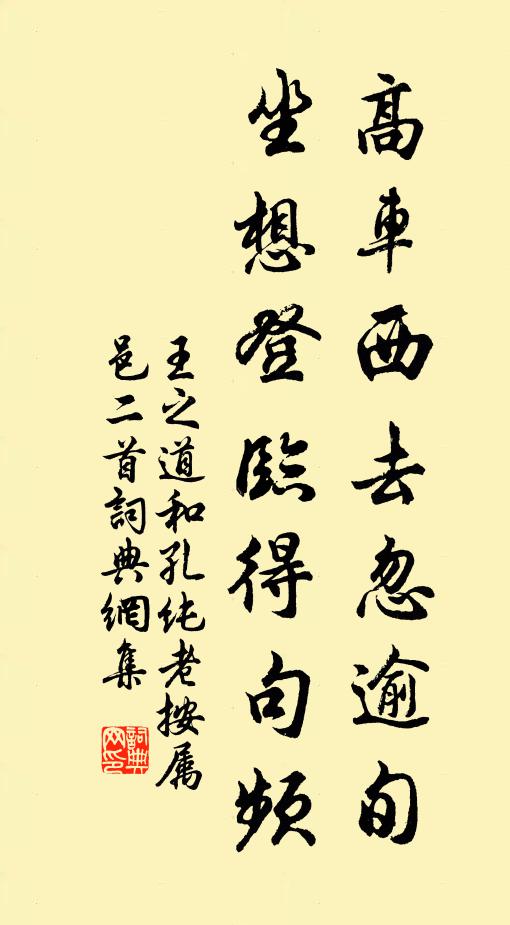 高車西去忽逾旬
坐想登臨得句頻
王之道和孔純老按属
邑二首詞典網集
詞典
网印